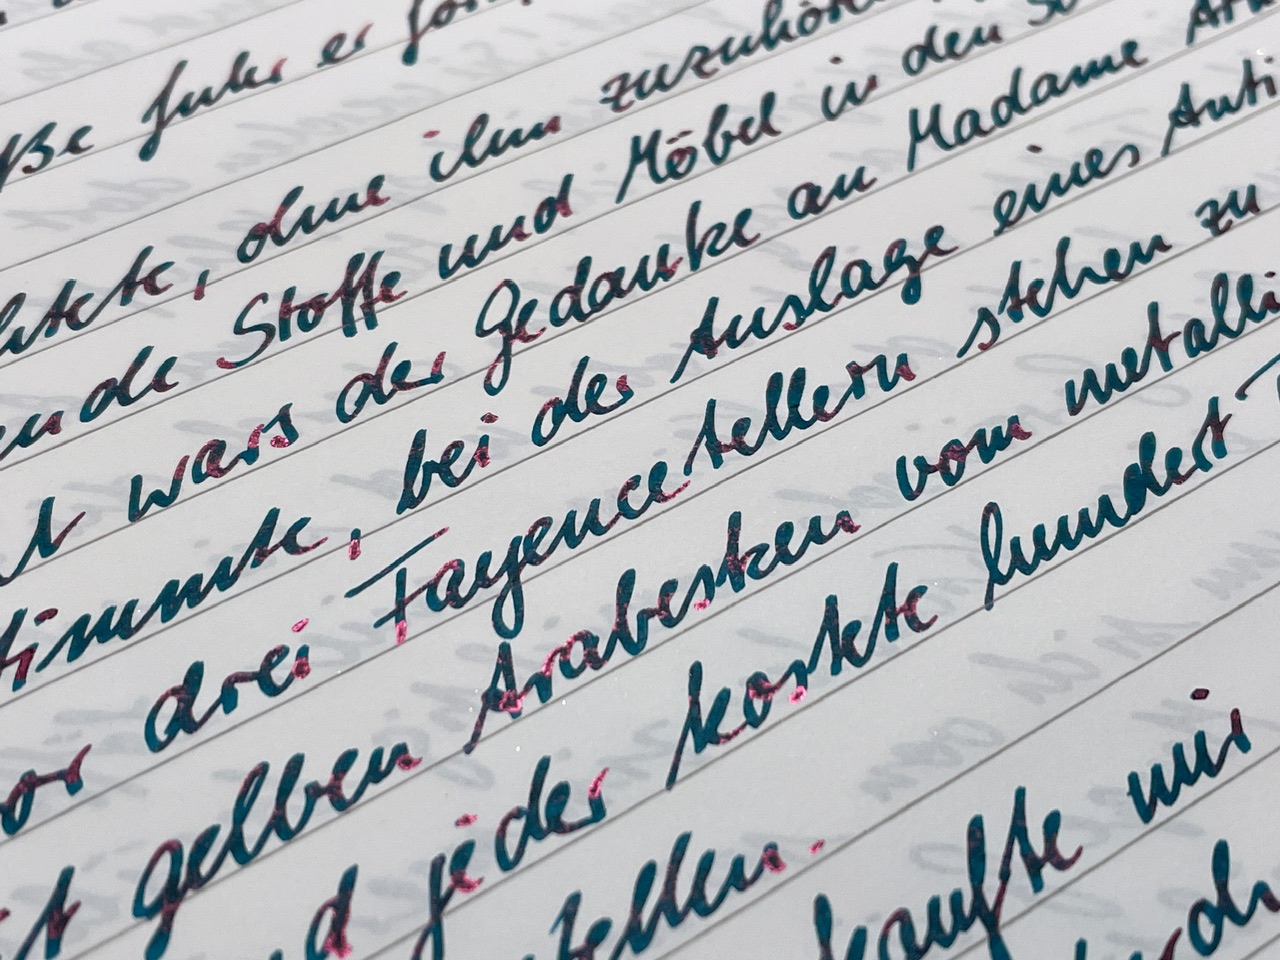 fuhr er
ohne ihm zuzuhör
Stoffe und Möbel in den
wars der Gedanke an Madame
timmte, bei der Auslage eines Anti
or drei Fayencetellern stehen zu
gelben Arabesken vom metalli
jeder kostete hundert
tellen.
kaufte mir